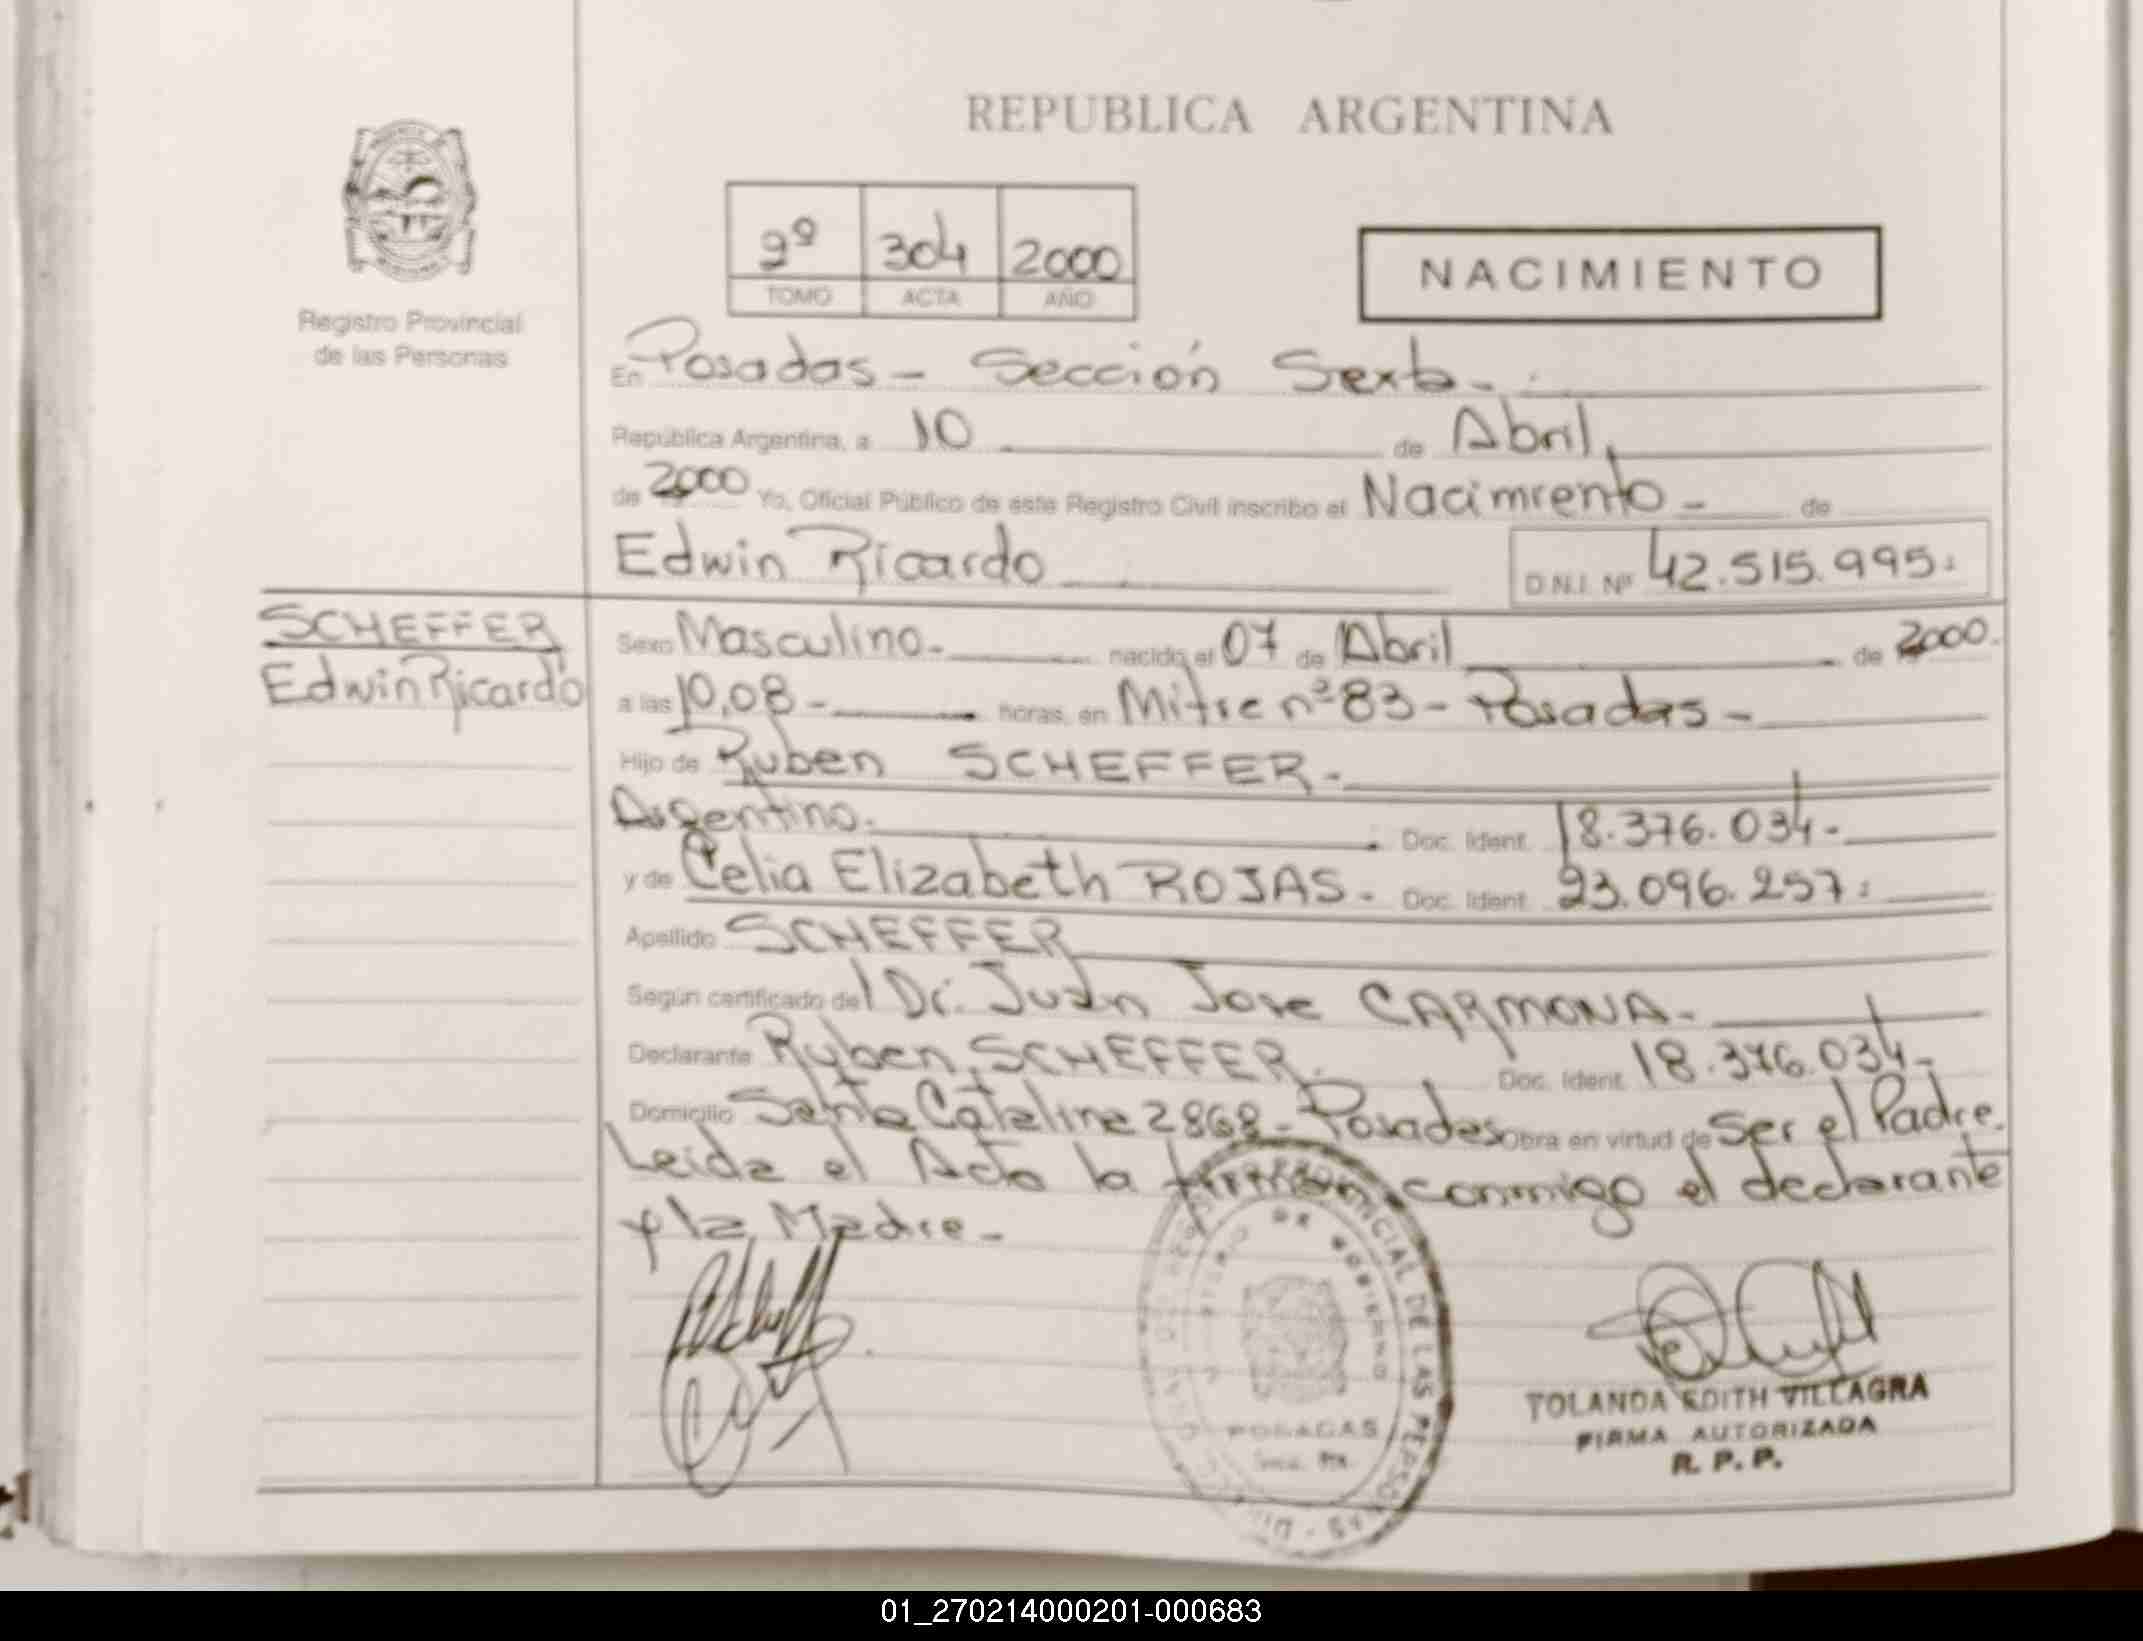 REPUBLICA ARGENTINA
Registro Provincial
de las Personas
9º 304 2000
TOMO ACTA AÑO
NACIMIENTO
En Posadas - Sección Sexta -
República Argentina, a 10 de Abril,
de 2000 Yo, Oficial Público de este Registro Civil inscribo el Nacimiento - de
Edwin Ricardo D.N.I. Nº 42.515.995.
SCHEFFER
Edwin Ricardo
Sexo Masculino. nacido el 07 de Abril de 2000.
a las 10,08 - horas, en Mitre nº 83 - Posadas -
Hijo de Ruben SCHEFFER.
Argentino. Doc. Ident. 18.376.034-
y de Celia Elizabeth ROJAS. Doc. Ident. 23.096.257.
Apellido SCHEFFER
Según certificado del Dr. Juan Jose CARMONA.
Declarante Ruben SCHEFFER. Doc. Ident. 18.376.034-
Domicilio Santa Catalina 2868 - Posadas Obra en virtud de Ser el Padre.
Leida el Acta la firman conmigo el declarante
y la Madre -
PROVINCIAL DE LAS PERSONAS
DE GOBIERNO
POSADAS
YOLANDA EDITH VILLAGRA
FIRMA AUTORIZADA
R. P. P.
01_270214000201-000683